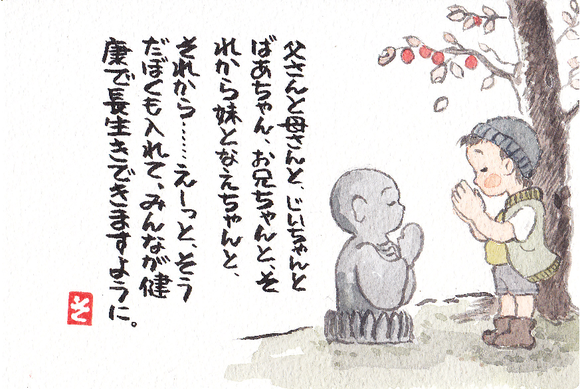 父さんと母さんと、じいちゃんと
ばあちゃん、お兄ちゃんと、そ
れから妹となえちゃんと、
それから……えーっと、そう
だぼくも入れて、みんなが健
康で長生きできますように。
そ